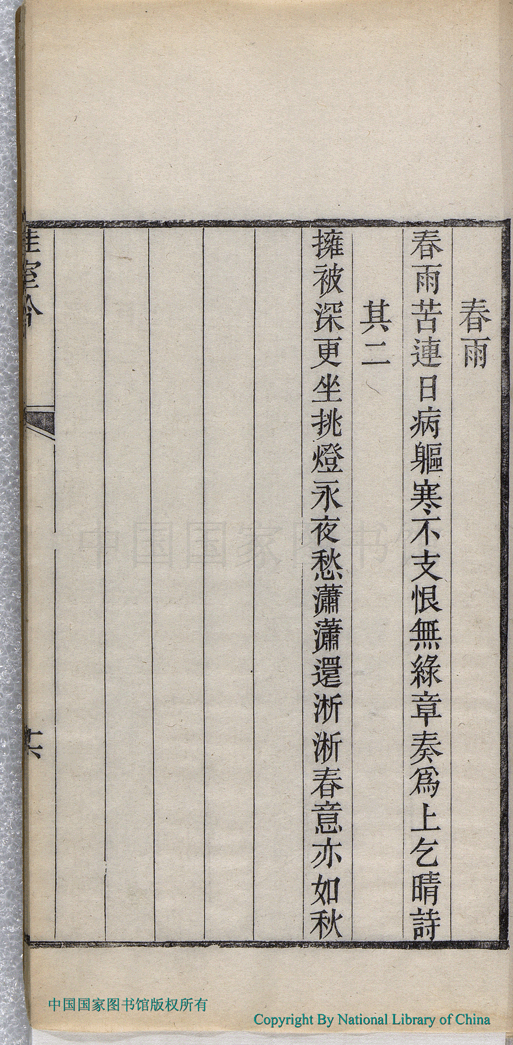 春雨
春雨苦連日病軀寒不支恨無綠章奏爲上乞晴詩
其二
擁被深更坐挑燈永夜愁瀟瀟還淅淅春意亦如秋
中国国家图书馆
中国国家图书馆版权所有
Copyright By National Library of China